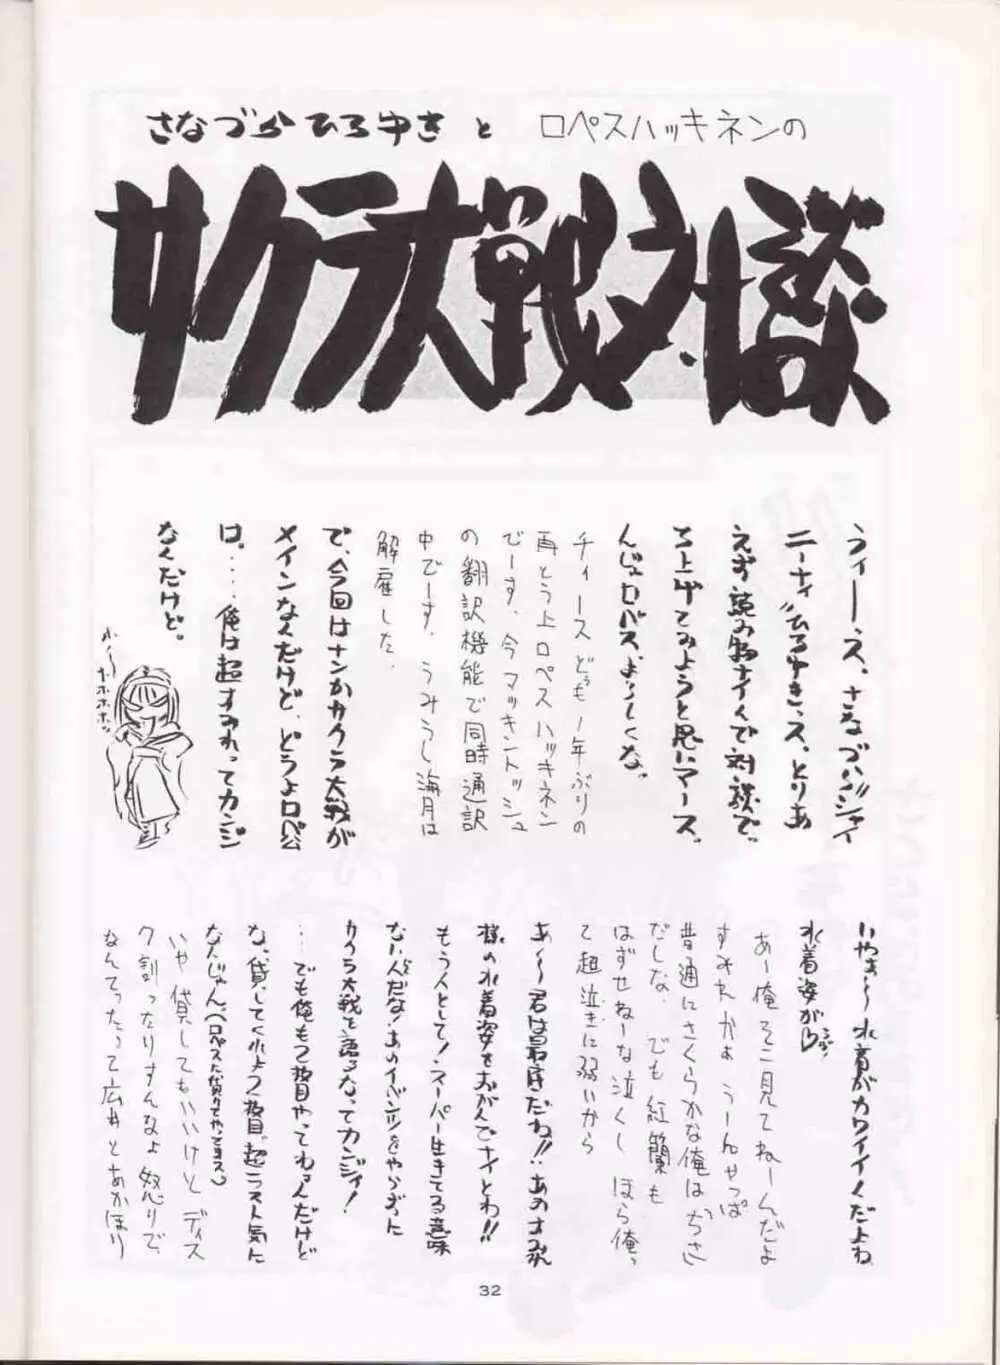 さなづらひろゆきと ロペスハッキネンの
サクラ大戦対談
うぃーース、さなづバジャイ
ニーナィ〝ひろゆきっス、とりあ
えず読み物ナイんで対談で、
も上げてみようと思いマース。
んじゃロペス、よろしくな。
チィースどうも1年ぶりの
再とう上ロペスハッキネン
でーす。今マッキントッシュ
の翻訳機能で同時通訳
中でーす。うみうし海月は
解雇した。
で、今回はナンかサクラ大戦が
メインなんだけど、どうよロペ公
は。‥‥俺は超すみれってカンジ
なんだけど。
ホ〜ホホホホッ
いやぁ〜水着がカワイイんだよね
水着姿が♡
あー俺そこ見てねーんだよ
すみれかぁ うーんやっぱ
普通にさくらかな俺は
だしな。でも紅蘭も
はずせねーな泣くし ほら俺っ
て超泣きに弱いから
あ〜〜君は最低だね!!あのすみれ
様の水着姿をおがんでナイとわ!!
もう人として!スーパー生きてる意味
ない人だな!あのイベントをやらずに
サクラ大戦を語るなってカンジィ!
‥‥でも俺も2枚目やってねぇんだけど
な。貸してくれよ2枚目。超ラスト気に
なんじゃん。(ロペスに貸りてやってまス。)
いや 貸してもいいけど ディス
ク割ったりすんなよ 怒りで
なんてったって広井とあかほり
32